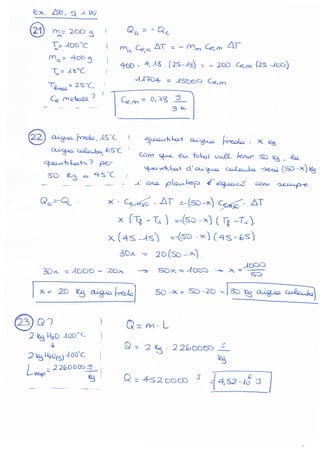 Ex. ΔU, Q i W
21) m = 200 g
T = 100°C
m = 400 g
T₀ = 18°C
T final = 25°C
Ce metall?
Qa = -Qc
ma Ce,a ΔT = -mm Ce,m ΔT
400 · 4,18 (25-18) = -200 Ce,m (25-100)
11704 = 15000 Ce,m
Ce,m = 0,78 J/g K
22) aigua freda, 15°C
aigua calenta, 65°C
quantitats? per
50 kg a 45°C
quantitat aigua freda: x kg
com que en total vull tenir 50 kg, la
quantitat d'aigua calenta serà (50-x) kg
i ara plantejo l'equació com sempre.
Qa = -Q
x · Ce,H₂O · ΔT = -(50-x) · Ce,H₂O · ΔT
x (Tf - T) = -(50-x) (Tf - T)
x (45-15) = -(50-x) (45-65)
30x = 20(50-x)
30x = 1000 - 20x → 50x = 1000 → x = 1000/50
x = 20 kg aigua freda
50-x = 50-20 = 30 kg aigua calenta
23) Q?
2 kg H₂O 100°C
↓
2 kg H₂O(g) 100°C
L vap = 2260000 J/kg
Q = m · L
Q = 2 kg · 2260000 J/kg
Q = 4520000 J = 4,52·10⁶ J